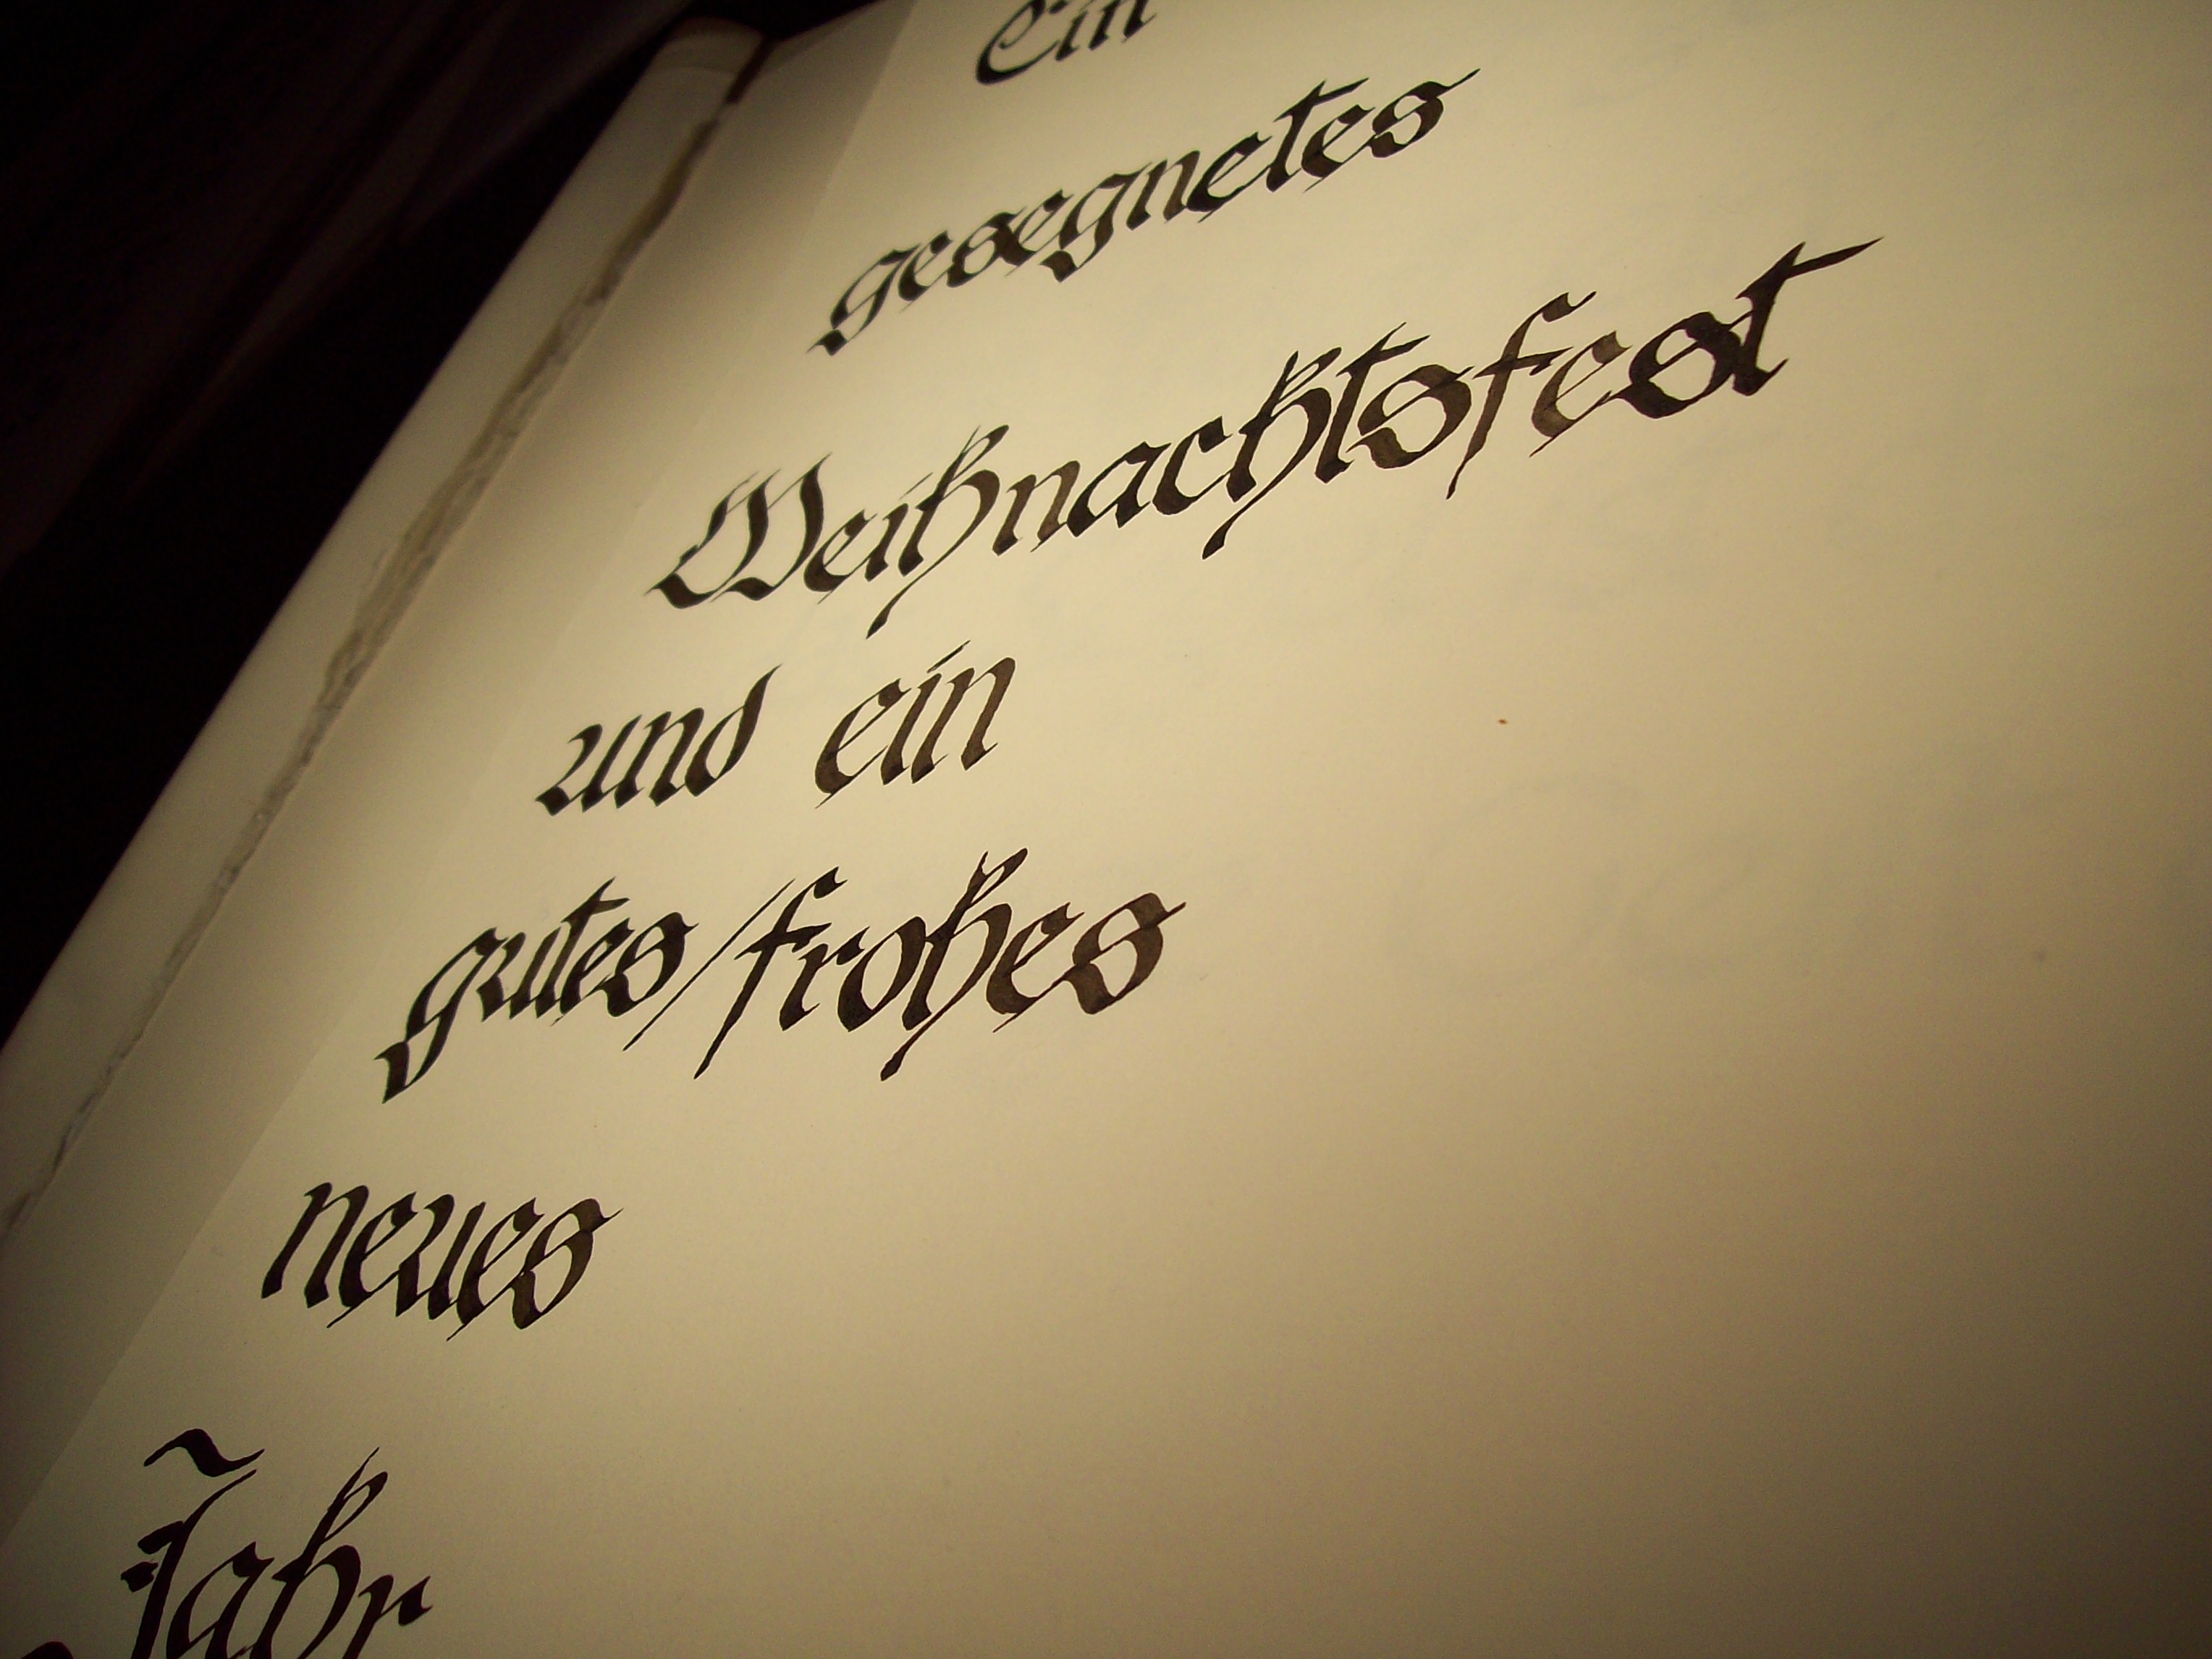 Ein
gesegnetes
Weihnachtsfest
und ein
gutes/frohes
neues
Jahr